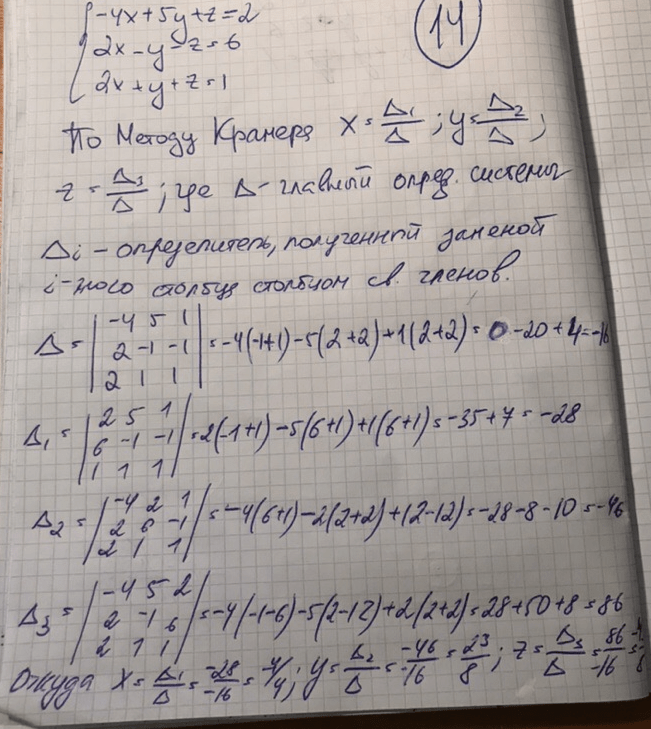 -4x+5y+z=2
2x-y-z=6
2x+y+z=1
14
По Методу Крамера x = Δ₁/Δ ; y = Δ₂/Δ ;
z = Δ₃/Δ ; где Δ - главный опред. системы
Δi - определитель, полученной заменой
i-того столбца столбцом св. членов.
Δ = | -4 5 1 | = -4(-1+1)-5(2+2)+1(2+2)= 0-20+4=-16
2 -1 -1
2 1 1
Δ₁ = | 2 5 1 | = 2(-1+1)-5(6+1)+1(6+1)=-35+7=-28
6 -1 -1
1 1 1
Δ₂ = | -4 2 1 | = -4(6+1)-2(2+2)+(2-12)=-28-8-10=-46
2 6 -1
2 1 1
Δ₃ = | -4 5 2 | = -4(-1-6)-5(2-12)+2(2+2)=28+50+8=86
2 -1 6
2 1 1
Откуда x = Δ₁/Δ = -28/-16 = /4 ; y = Δ₂/Δ = -46/-16 = 23/8 ; z = Δ₃/Δ = 86/-16 =